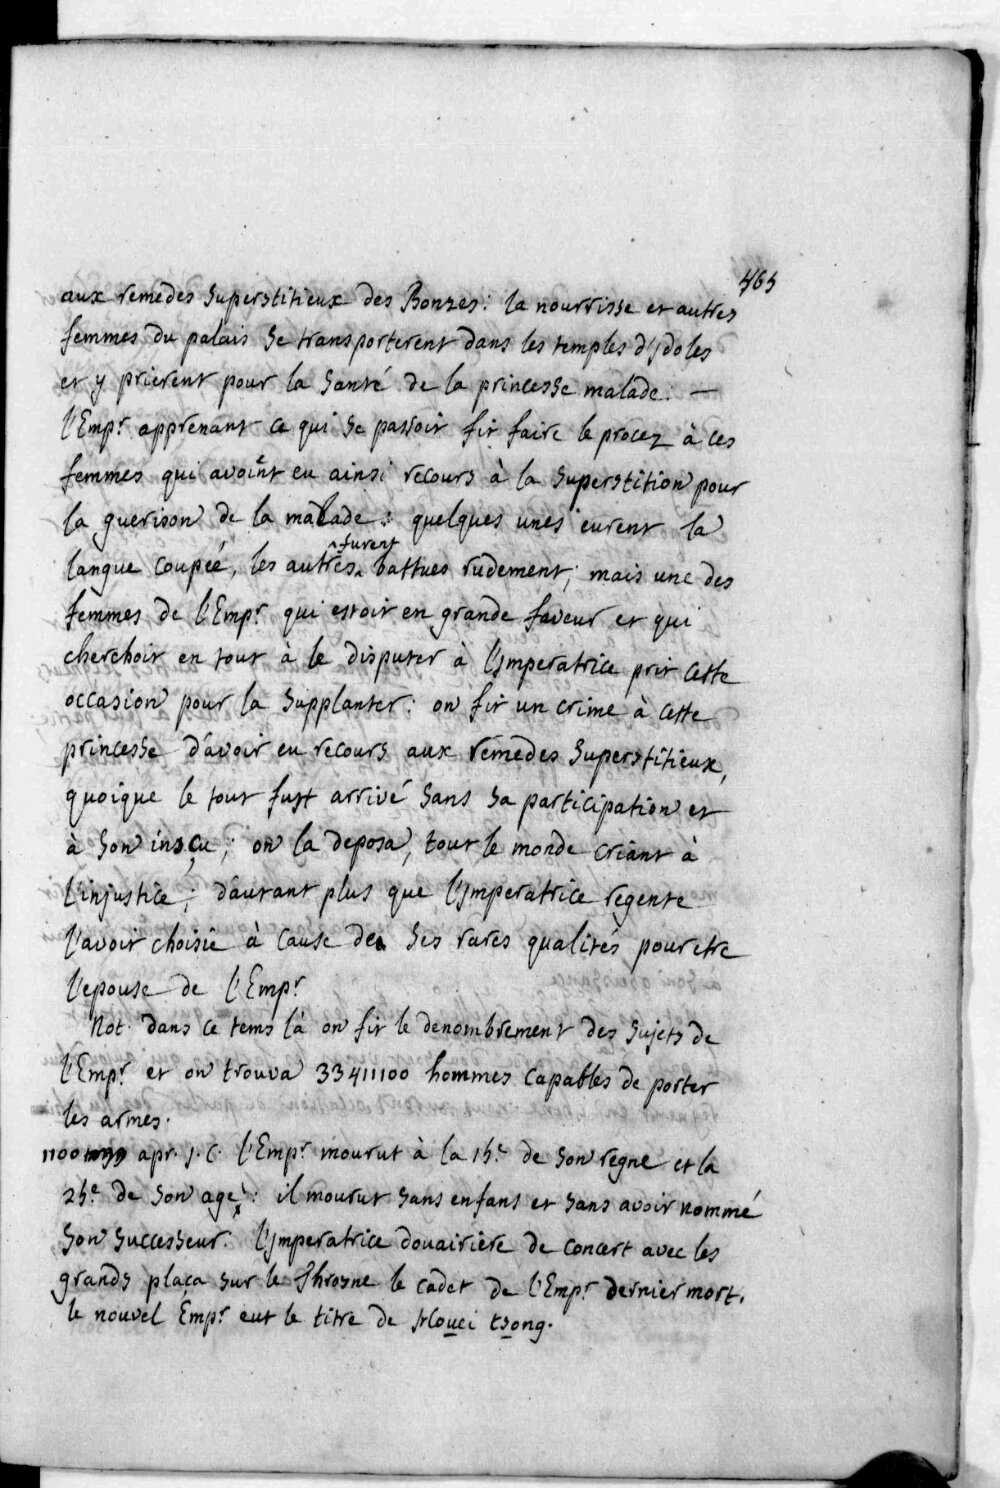 465
aux remedes superstitieux des Bonzes: la nourrisse et autres
femmes du palais se transporterent dans les temples d'ydoles
et y prierent pour la santé de la princesse malade. —
l'Empr. apprenant ce qui se passoit fit faire le procez à ces
femmes qui avoiẽt eu ainsi recours à la superstition pour
la guerison de la malade: quelques unes eurent la
langue coupée, les autres furent battues rudement; mais une des
femmes de l'Empr. qui estoit en grande faveur et qui
cherchoit en tout à le disputer à l'Imperatrice prit cette
occasion pour la supplanter: on fit un crime à cette
princesse d'avoir eu recours aux remedes superstitieux,
quoique le tout fust arrivé sans sa participation et
à son insçu; on la deposa, tout le monde criant à
l'injustice; d'autant plus que l'Imperatrice regente
l'avoit choisie à cause de ses rares qualités pour etre
l'epouse de l'Empr.
Not. dans ce tems là on fit le denombrement des sujets de
l'Empr. et on trouva 33411100 hommes capables de porter
les armes.
1100 apr. J. C. l'Empr. mourut à la 15e. de son regne et la
25e. de son age: il mourut sans enfans et sans avoir nommé
son successeur. l'Imperatrice douairière de concert avec les
grands plaça sur le Throsne le cadet de l'Empr. dernier mort.
le nouvel Empr. eut le titre de Houei tsong.